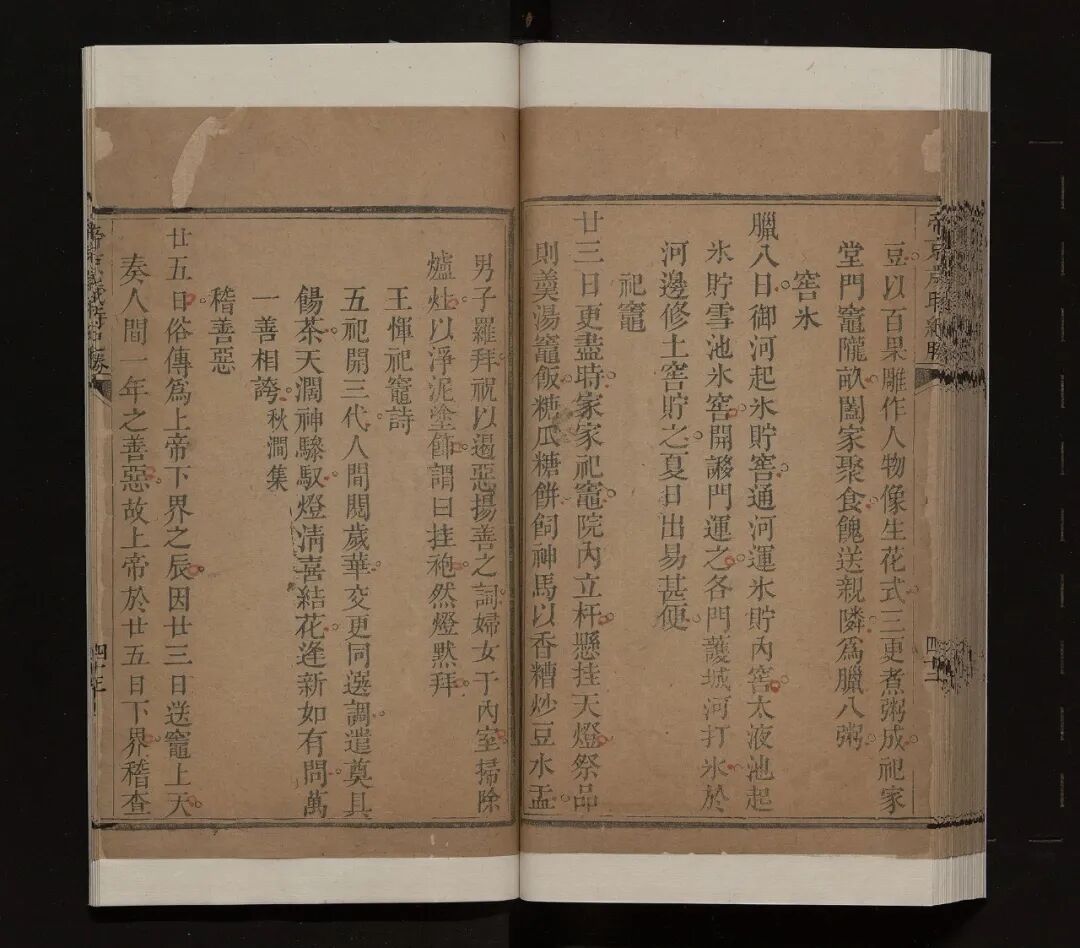 帝京歲時紀勝
豆以百果雕作人物像生花式三更煮粥成祀家
堂門竈隴畝闔家聚食餽送親隣爲臘八粥
窖氷
臘八日御河起氷貯窖通河運氷貯內窖太液池起
氷貯雪池氷窖開諺門運之各門護城河打氷於
河邊修土窖貯之夏日出易甚便
祀竈
廿三日更盡時家家祀竈院內立杆懸挂天燈祭品
則羹湯竈飯糖瓜糖餅飼神馬以香糟炒豆水盂
男子羅拜祝以遏惡揚善之詞婦女于內室掃除
爐灶以淨泥塗飾謂曰挂袍然燈默拜
王惲祀竈詩
五祀開三代人間閱歲華交更同選調遣奠具
餳茶天濶神驂馭燈淸喜結花逢新如有問萬
一善相誇秋澗集
稽善惡
廿五日俗傳爲上帝下界之辰因廿三日送竈上天
奏人間一年之善惡故上帝於廿五日下界稽查